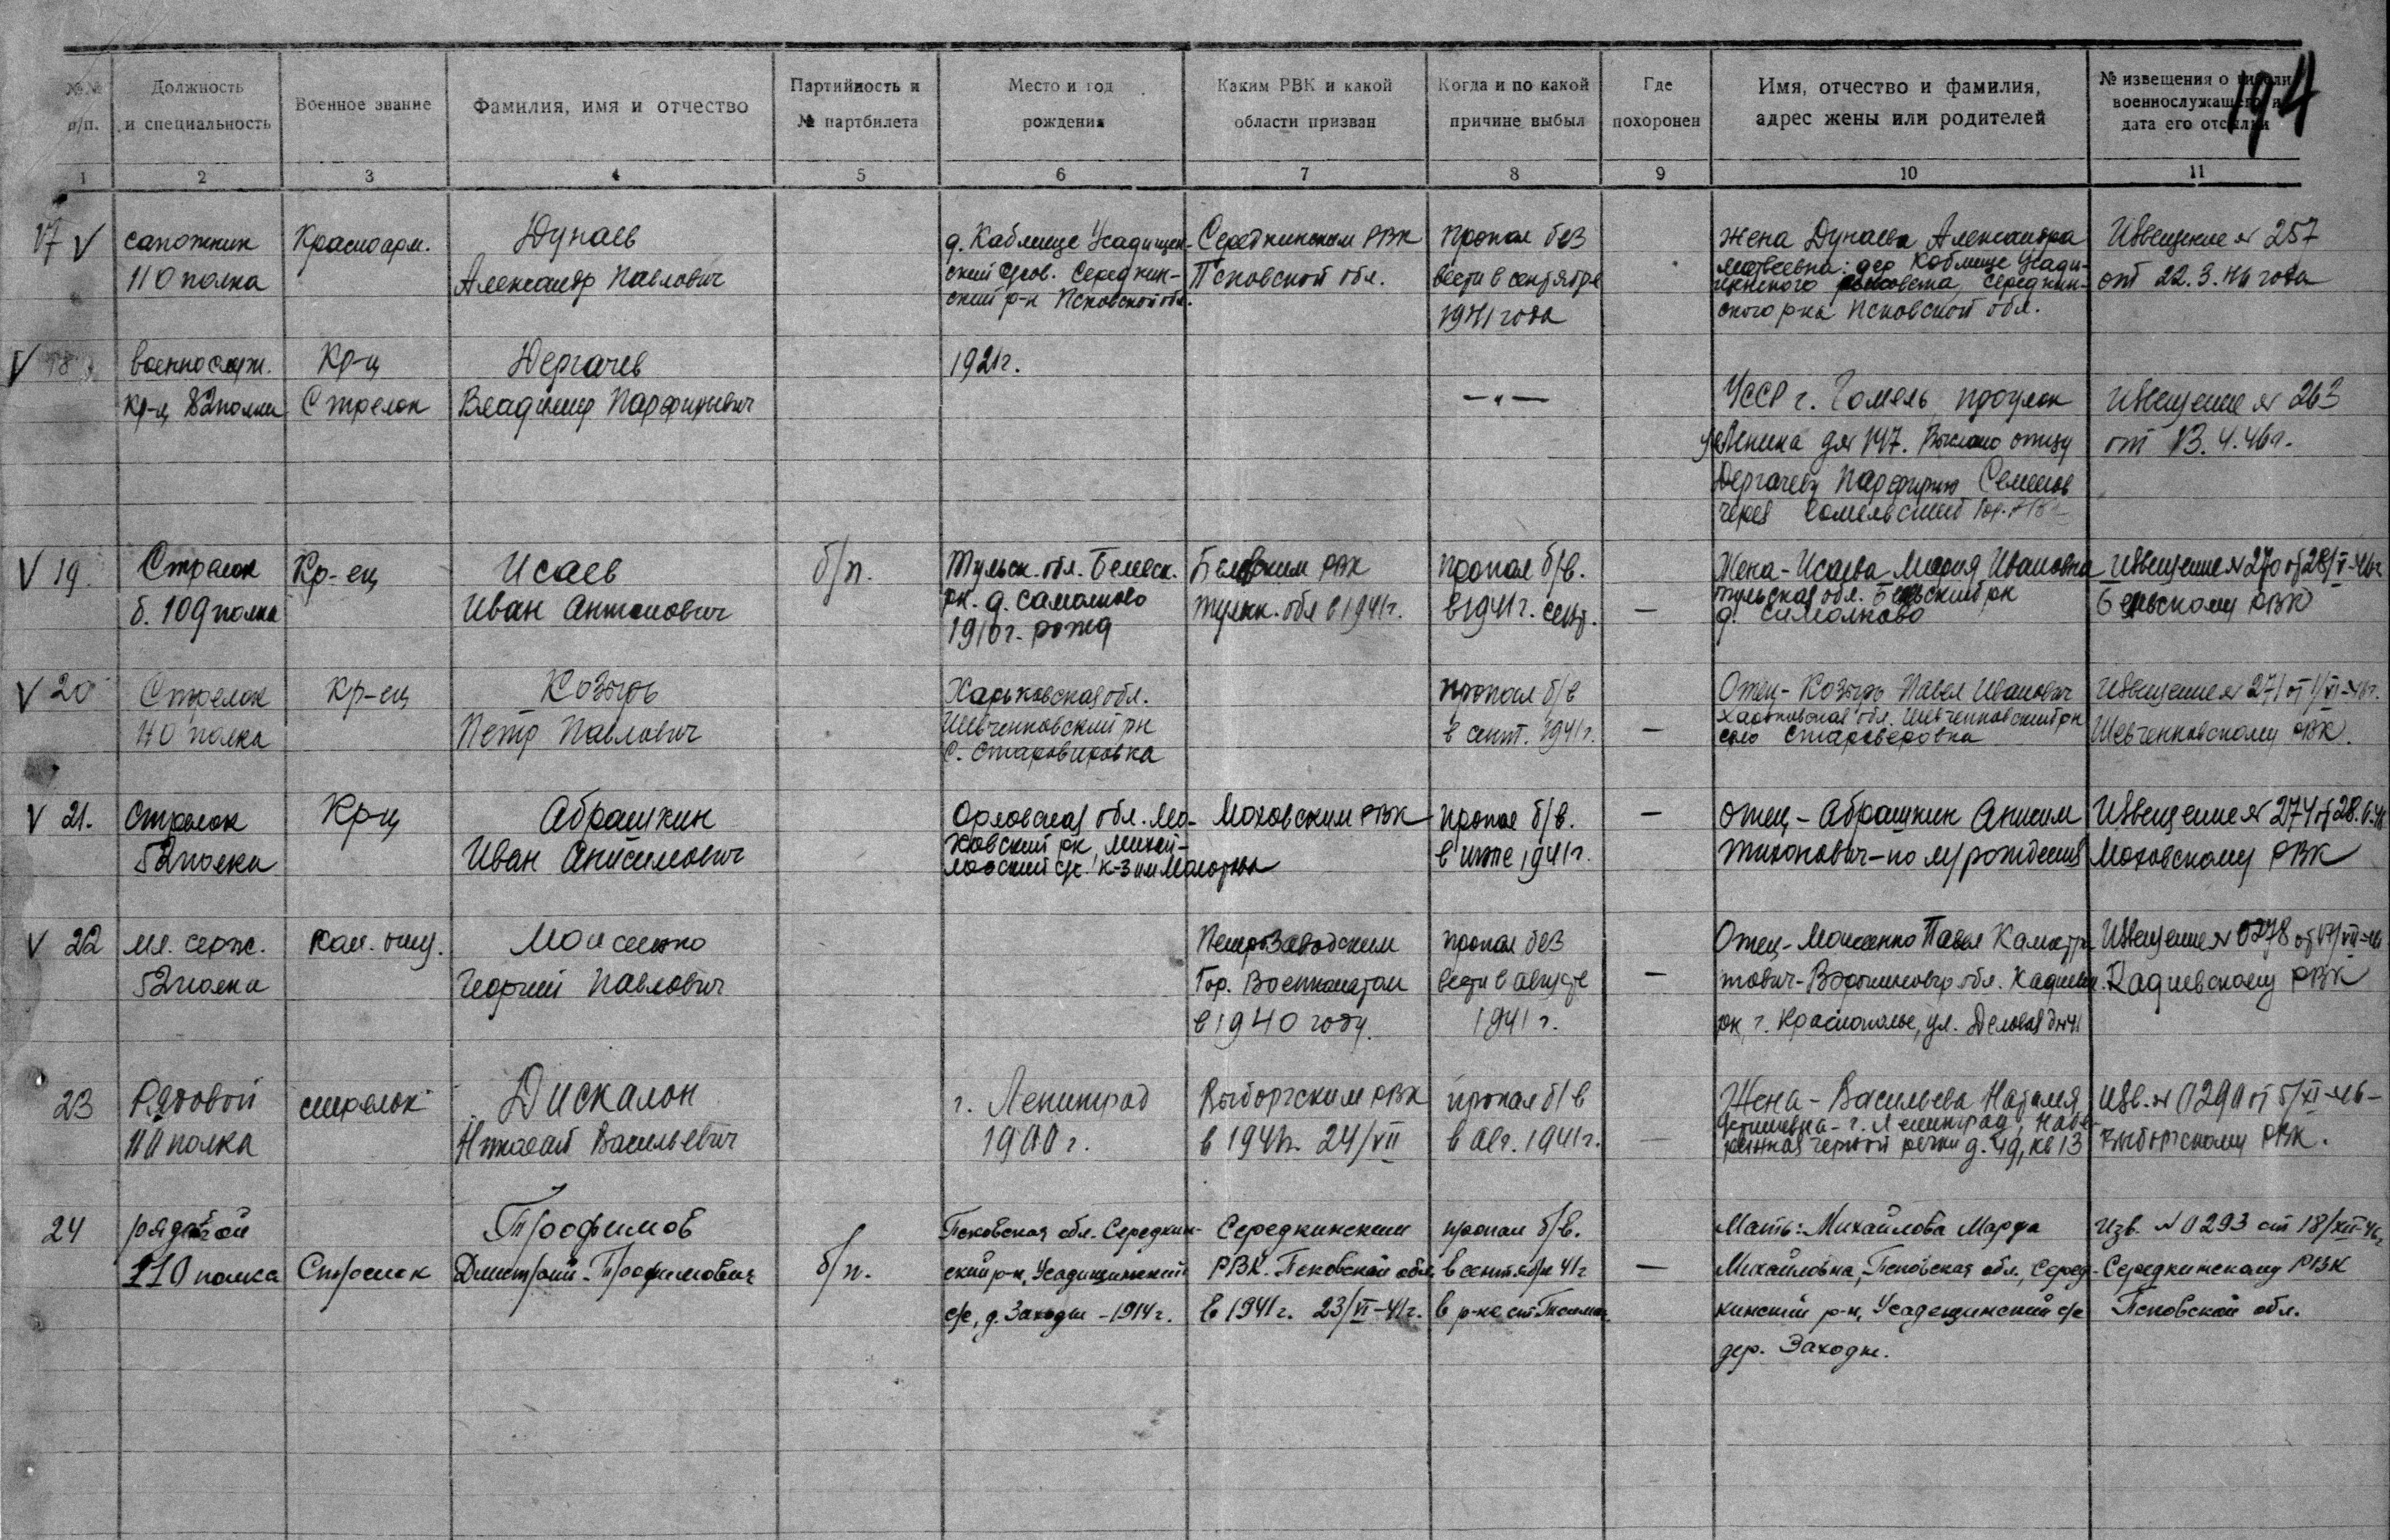 194
№№ п/п.
Должность и специальность
Военное звание
Фамилия, имя и отчество
Партийность и № партбилета
Место и год рождения
Каким РВК и какой области призван
Когда и по какой причине выбыл
Где похоронен
Имя, отчество и фамилия, адрес жены или родителей
№ извещения о гибели военнослужащего и дата его отсылки
1 2 3 4 5 6 7 8 9 10 11
17 V
сапожник
110 полка
Красноарм.
Дунаев
Александр Павлович
д. Каблище Усадищен-
ский сров. Середкин-
ский р-н Псковской обл.
Середкинским РВК
Псковской обл.
пропал без
вести в сентябре
1941 года
жена Дунаева Александра
Матвеевна: дер Коблище Усади-
щенского сельсовета Середкин-
ского р-на Псковской обл.
Извещение № 257
от 22.3.46 года
V 18
военнослуж.
кр-ц 82 полка
Кр-ц
Стрелок
Дергачев
Владимир Парфирьевич
1921г.
—„—
УССР г. Гомель, проулок
Ленина д№ 147. Выслано отцу
Дергачеву Парфирию Семенов
через Гомельский Гор.
Извещение № 263
от 13.4.46г.
V 19.
Стрелок
б. 109 полка
Кр-ец
Исаев
Иван Антонович
б/п.
Тульск. обл. Белевск.
рн. д. Самолково
1910г. рожд
Белевским РВК
Тульск. обл в 1941г.
пропал б/в.
в 1941г. сент.
—
Жена - Исаева Мария Ивановна
Тульская обл. Белевский рн
д. Симолково
Извещение № 270 от 28/V-46г
Белевскому РВК
V 20
Стрелок
110 полка
Кр-ец
Козырь
Петр Павлович
Харьковская обл.
Шевченковский рн
с. Старовировка
пропал б/в
в сент. 1941г.
—
Отец - Козырь Павел Иванович
Харьковская обл. Шевченковский рн
село Староверовка
Извещение № 271 от 1/VI-46г.
Шевченковскому РВК.
V 21.
Стрелок
52 полка
Кр-ц
Абрашкин
Иван Анисимович
Орловская обл. Мо-
ховский рн, Михай-
ловский с/с. к-з им Молотова
Моховским РВК
пропал б/в.
в июле 1941г.
—
отец - Абрашкин Анисим
Тихонович - по м/рождения
Извещение № 274 от 28.6.46
Моховскому РВК
V 22
мл. серж.
52 полка
ком. отд.
Моисеенко
Георгий Павлович
Петрозаводским
Гор. Военкоматом
в 1940 году.
пропал без
вести в августе
1941 г.
—
Отец - Моисеенко Павел
тович - Ворошиловгр обл. Кадиевск.
рн, г. Краснополье, ул. Деловая
Извещение № 0278 от 17/VII-46
Кадиевскому РВК
23
Рядовой
110 полка
стрелок
Дискалон
Николай Васильевич
г. Ленинград
1900 г.
Выборгским РВК
в 1941г. 24/VII
пропал б/в
в авг. 1941г.
—
Жена - Васильева Наталия
г. Ленинград, Набе-
режная черной речки д. 49, кв 13
Изв. № 0290 от 5/XI-46-
Выборгскому РВК.
24
рядовой
110 полка
Стрелок
Трофимов
Дмитрий Трофимович
б/п.
Псковская обл. Середкин-
ский р-н, Усадищенский
с/с, д. Заходы - 1914 г.
Середкинским
РВК. Псковской обл.
в 1941г. 23/VI-41г.
пропал б/в.
в сентябре 41г
в р-не ст
—
Мать: Михайлова Марфа
Михайловна, Псковская обл., Серед-
кинский р-н, Усадещинский с/с
дер. Заходы.
Изв. № 0293 от 18/XII-46г
Середкинскому РВК
Псковской обл.